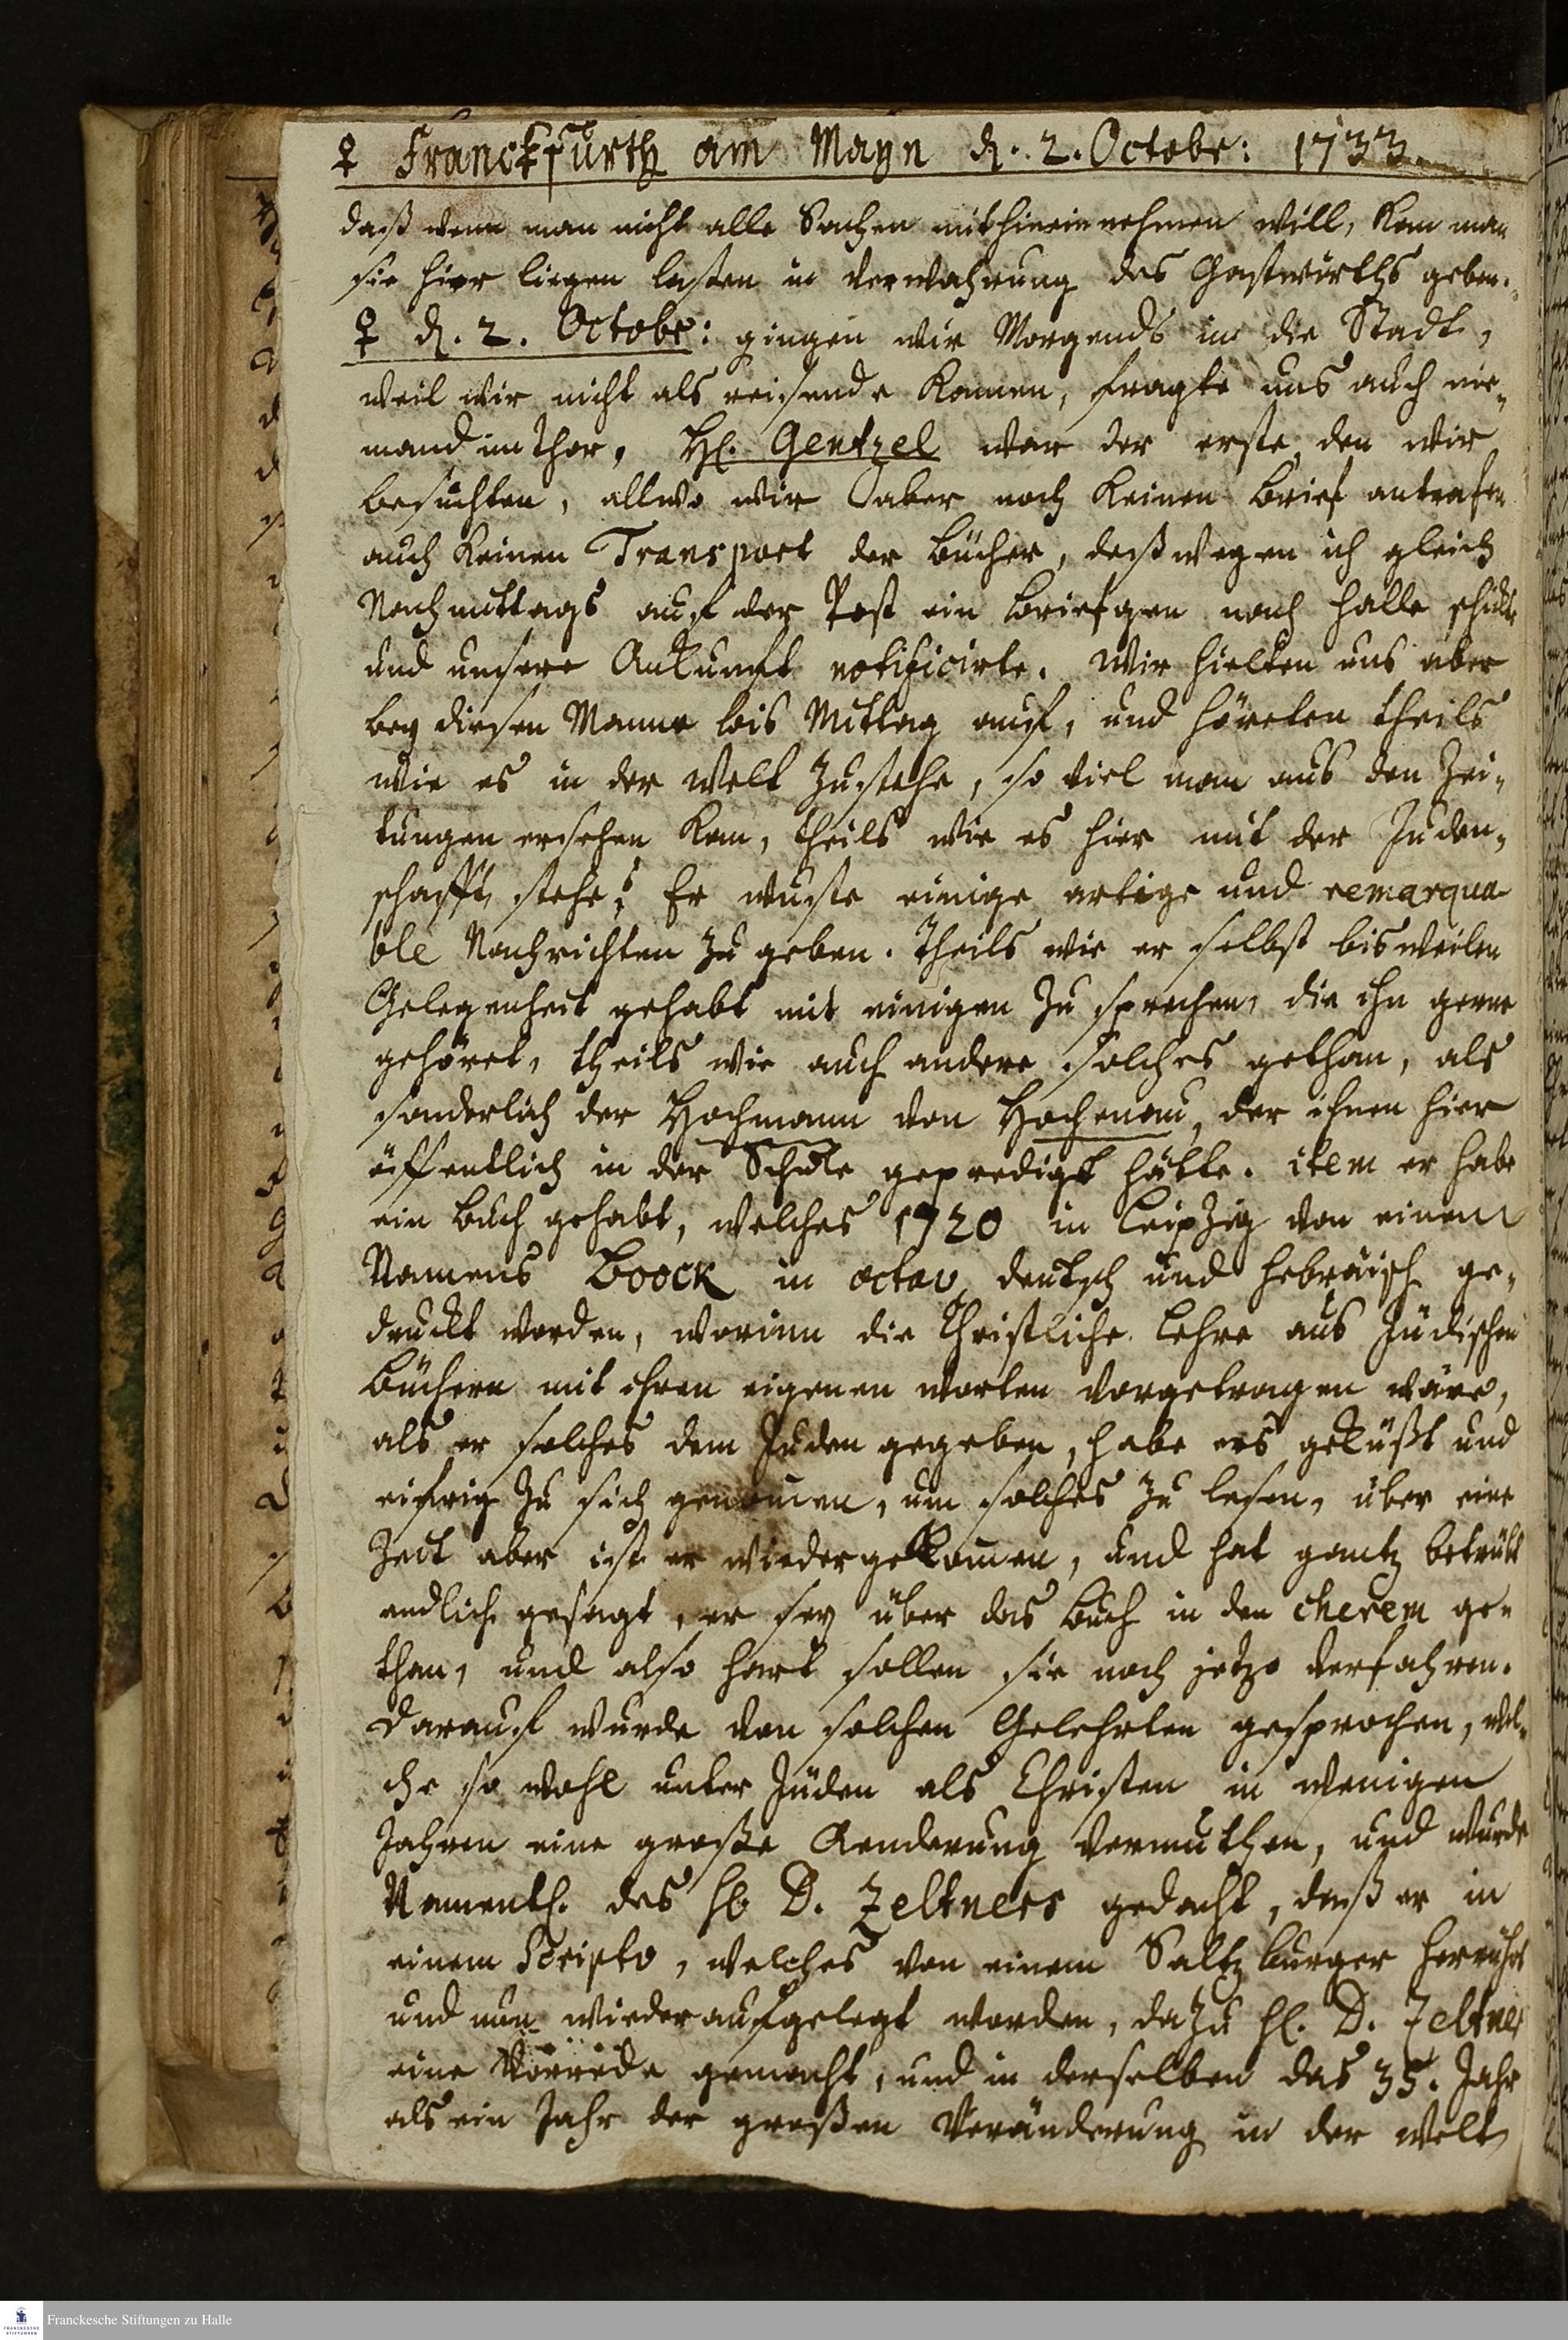 ♀ Franckfurth am Mayn d. 2. Octobr: 1733.
daß wenn man nicht alle Sachen mit hinein nehmen will, kan man
sie hier liegen laßen in Verwahrung des Gastwirths geben.
♀ d. 2. Octobr: gingen wir Morgends in die Stadt,
weil wir nicht als reisende kamen, fragte uns auch nie-
mand im Thor. H. Gentzel war der erste den wir
besuchten, allwo wir aber noch keinen Brief antrafen
auch keinen Transport der Bücher, deßwegen ich gleich
Nachmittags auf der Post ein Briefgen nach Halle schickte
und unsere Ankunfft notificirte. Wir hielten uns aber
bey diesen Manne bis Mittag auf, und höreten theils
wie es in der Welt zustehe, so viel man aus den Zei-
tungen ersehen kan, theils wie es hier mit der Juden-
schafft stehe; Er wuste einige artige und remarqua
ble Nachrichten zu geben. Theils wie er selbst bisweilen
Gelegenheit gehabt mit einigen zu sprechen, die ihn gerne
gehöret, theils wie auch andere solches gethan, als
sonderlich der Hochmann von Hochenau, der ihnen hier
öffentlich in der Schule geprediget hätte. item er habe
ein Buch gehabt, welches 1720 in Leipzig von einem
Namens Boock in octav, deutsch und hebräisch ge-
druckt worden, worinn die Christliche Lehre aus Jüdischen
Büchern mit ihren eigenen worten vorgetragen wäre,
als er solches dem Juden gegeben, habe ers geküßt und
eifrig zu sich genomen, um solches zu lesen, über eine
Zeit aber ist er wiedergekomen, und hat gantz betrübt
endlich gesagt, er sey über das Buch in den cherem ge-
than, und also hart sollen sie noch jetzo verfahren.
Darauf wurde von solchen Gelehrten gesprochen, wel-
che so wohl unter Jüden als Christen in wenigen
Jahren eine große Aenderung vermuthen, und wurde
Nament. des H D. Zeltners gedacht, daß er in
einem Scripto, welches von einem Saltzburger herrührt
und nun wieder aufgelegt worden, dazu H. D. Zeltner
eine Vorrede gemacht, und in derselben das 35. Jahr
als ein Jahr der großen Veränderung in der Welt
Franckesche Stiftungen zu Halle